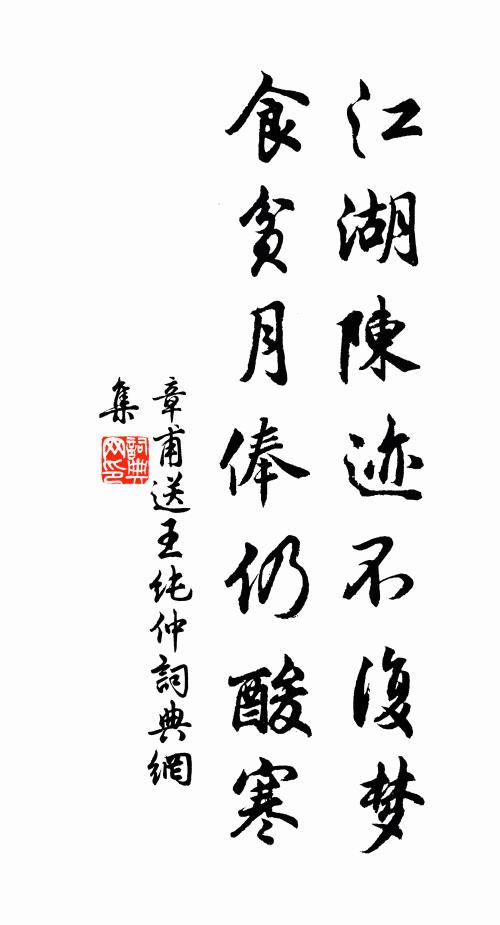 江湖陳迹不復梦
食貧月俸仍酸寒
章甫送王纯仲詞典網
集
詞典
网印